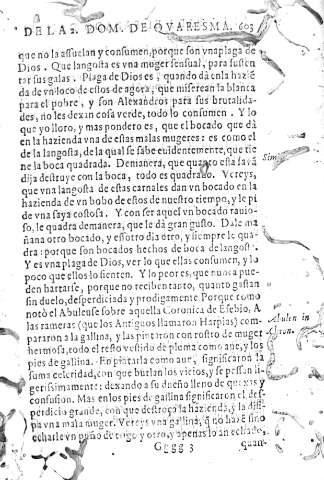 DE LA 2. DOM. DE QVARESMA. 603
que no la assuelan y consumen, porque son vna plaga de
Dios. Que langosta es vna muger sensual, para susten
tar sus galas. Plaga de Dios es, quando dà en la haziē
da de vn loco de estos de agora, que miserean la blanca
para el pobre, y son Alexandros para sus brutalida-
des, no les dexan cosa verde, todo lo consumen. Y lo
que yo lloro, y mas pondero es, que el bocado que dà
en la hazienda vna de estas malas mugeres: es como el
de la langosta, de la qual se sabe euidentemente, que tie
ne la boca quadrada. De manera, que quanto esta
dija destruye con la boca, todo es quadrado. Vereys,
que vna langosta de estas carnales dan vn bocado en la
hazienda de vn bobo de estos de nuestro tiempo, y le pi
de vna saya costosa. Y con ser aquel vn bocado rauio-
so, le quadra demanera, que le dà gran gusto. Dale ma
ñana otro bocado, y essotro dia otro, y siempre le qua-
dra: porque son bocados hechos de boca de langosta.
Y es vna plaga de Dios, ver lo que ellas consumen, y lo
poco que ellos lo sienten. Y lo peor es, que nunca pue-
den hartarse, porque no reciben tanto, quanto gastan
sin duelo, desperdiciada y prodigamente. Porque como
notò el Abulense sobre aquella Coronica de Esebio, A
las rameras (que los Antiguos llamaron Harpias) com-
pararon a la gallina, y las pintaron con rostro de muger
hermosa, todo el resto vestido de pluma como aue, y los
pies de gallina. En pintarla como aue, significaron la
suma celeridad, con que burlan los vicios, y se passan li-
gerissimamente: dexando a su dueño lleno de quexas y
confusion. Mas en los pies de gallina significaron el des-
perdicio grande, con que destroça la hazienda, y la
vna mala muger. Vereys vna gallina, q̃ no haze sino
echarle vn puño de trigo y otro, y apenas lo an echado,
Gggg 3 quan-
Abulen in